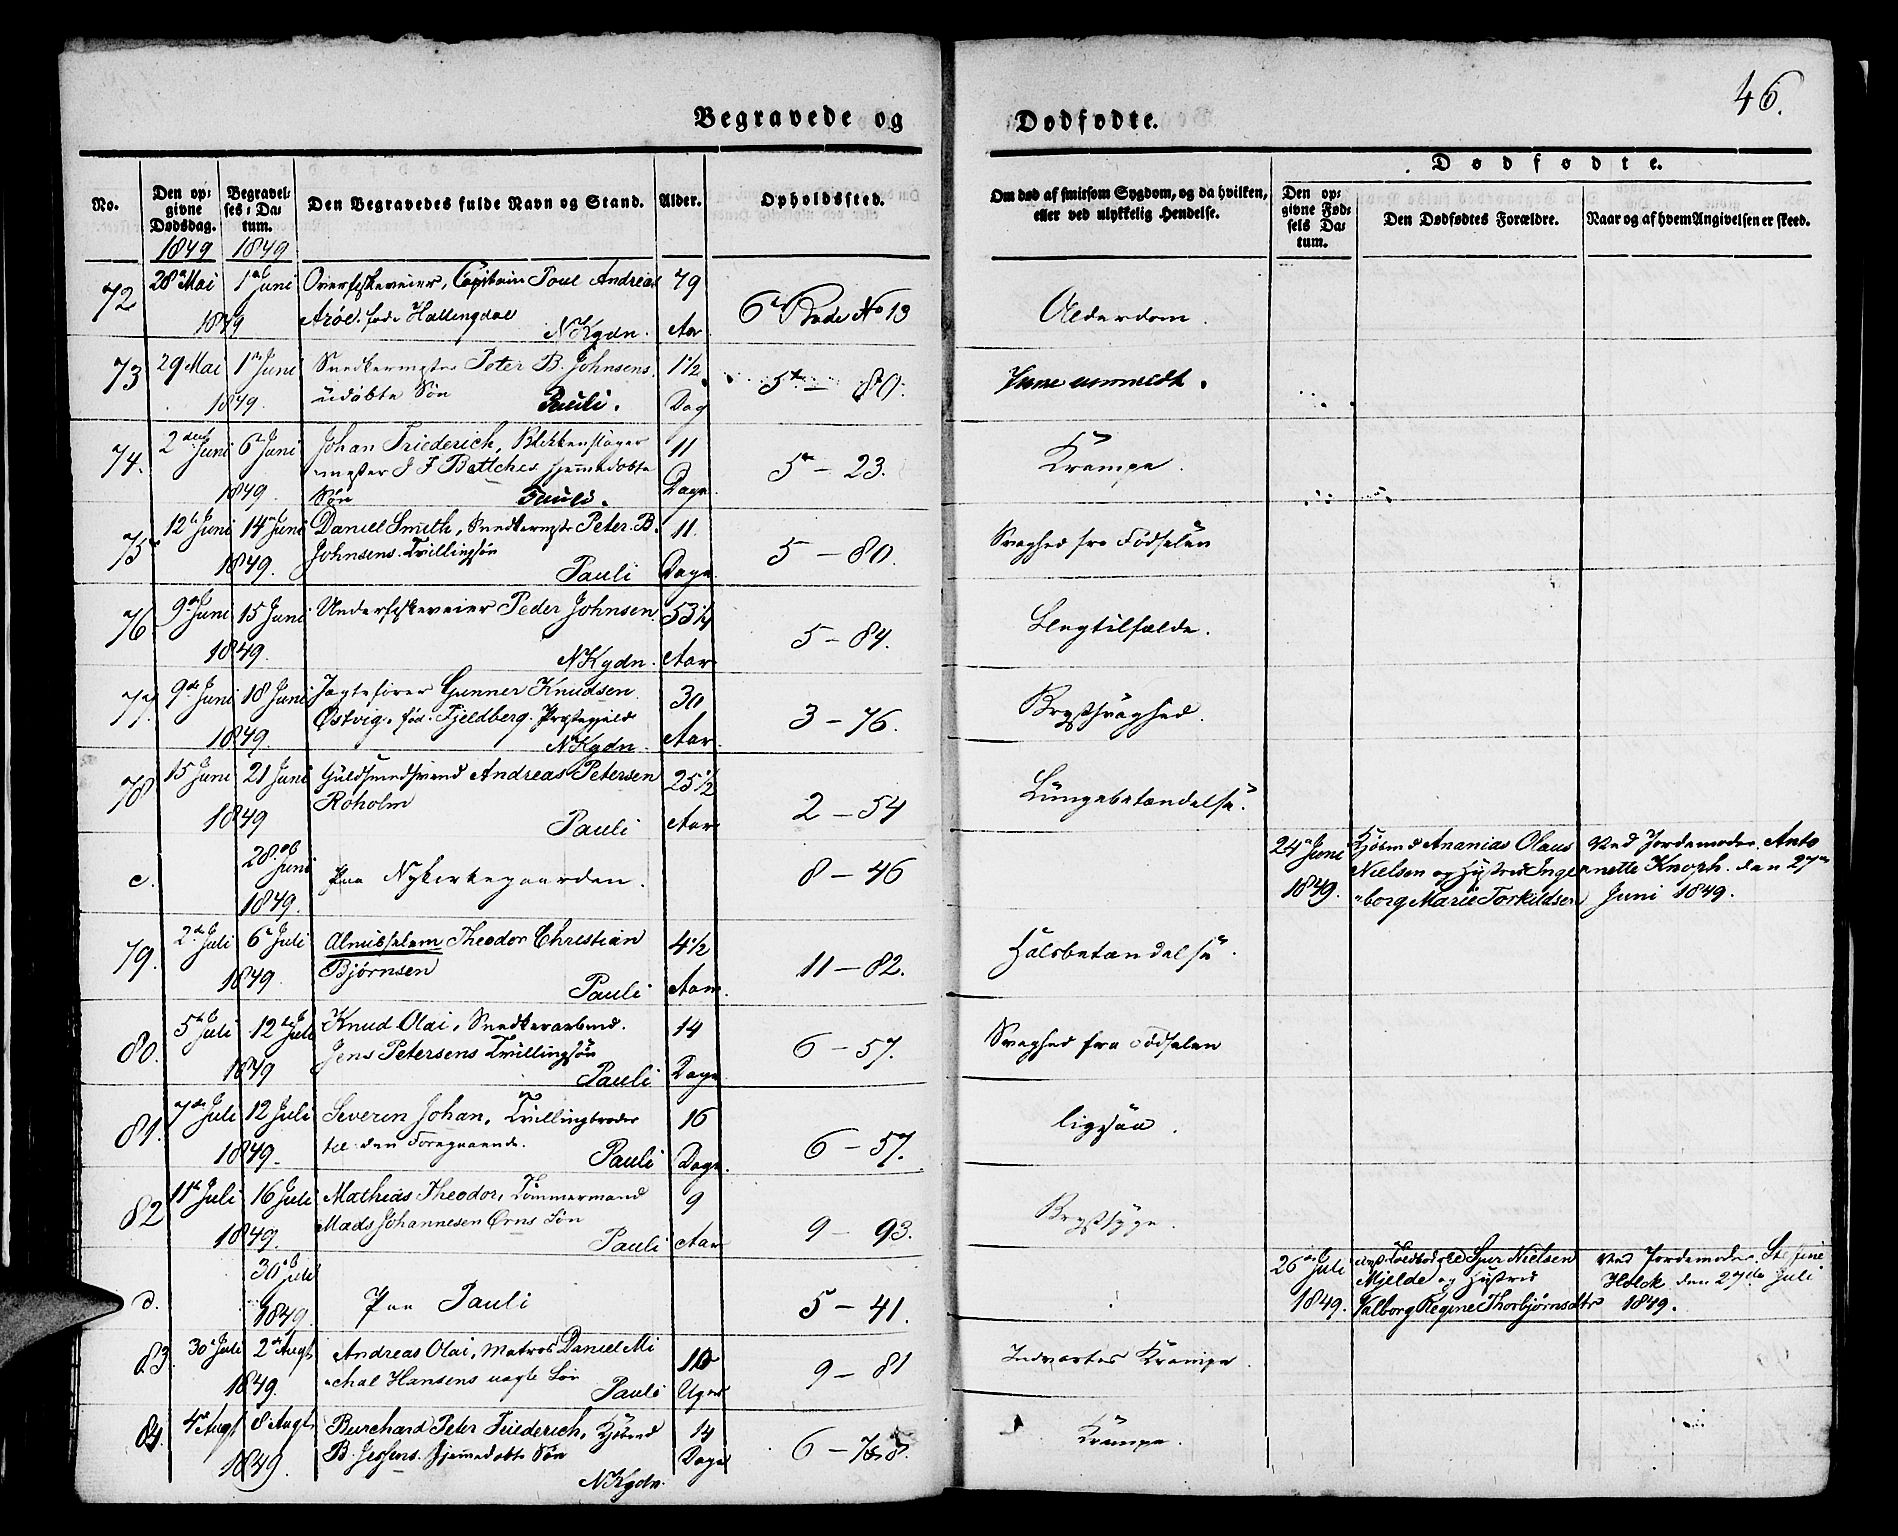 46.
Begravede og Dødfødte.
No. Den opgivne Dødsdag. Begravelses-Datum. Den Begravedes fulde Navn og Stand. Alder. Opholdssted. Om død af smitsom Sygdom, og da hvilken, eller ved ulykkelig Hendelse. Dødfødte. Den opgivne Fødsels Datum. Den Dødfødtes Forældre. Naar og af hvem Angivelsen er skeed.
1849 1849
72 28 Mai 1 Juni Capitain Poul Andreas 79
1849 Arøe. fød i Hallingdal NKgdn. Aar 6 Rode No 13 Alderdom.
73 29 Mai 1 Juni Snedkermester Peter B. Johnsens 1 1/2
1849. udøbte Søn Pauli. Dag 5 – 80.
74. 2 Juni 6 Juni Johan Friederich, Blikkenslager 11
mester J F Bøttchers hjemmedøbte Dage 5 – 23. Krampe.
1849. Søn Pauli.
75 12 Juni 14 Juni Daniel Smith, Snedkermstr Peter B. 11.
1849. Johnsens Tvillingsøn Pauli Dage. 5 – 80. Svaghed fra Fødselen
76 9 Juni 15 Juni Underfiskeveier Peder Johnsen 53 1/4
1849. NKgdn. Aar 5 – 84. Slagtilfælde.
77. 9 Juni 18 Juni Jagtefører Gunner Knudsen 30
1849. Østvig. fød. Fjeldberg Præstegield NKgdn. Aar 3 – 76. Brystsvaghed.
78 15 Juni 21 Juni Guldsmedsvend Andreas Petersen 25 1/2
1849 Roholm Pauli Aar 2 – 54 Lungebetændelse.
c. 28 Juni 1849. Paa Nykirkegaarden. 8 – 46
24 Juni 1849. Kjøbmd Ananias Olaus Nielsen og Hustru Ingeborg Marie Torkildsen
Ved Jordemoder Antonette Knoph. den 27 Juni 1849.
79. 2 Juli 6 Juli Theodor Christian 4 1/2
1849. Bjørnsen Pauli Aar 11 – 82. Halsbetændelse.
80. 5 Juli 12 Juli Knud Olai, Snedkerarbmd. 14
1849 Jens Petersens Tvillingsøn Pauli Dage 6 – 57. Svaghed fra Fødselen
81. 7 Juli 12 Juli Severin Johan, Tvillingbroder 16
1849. til den Foregaaende. Pauli Dage. 6 – 57. ligesaa.
82 11 Juli 16 Juli Mathias Theodor, Tømmermand 9
1849. Mads Johannesen Ørns Søn Pauli Aar 9 – 93. Brystsyge.
d. 30 Juli 1849. Paa Pauli 5 – 41.
26 Juli 1849. Sjur Nielsen Mjelde og Hustru Valborg Regine Thorbjørnsdtr
Ved Jordemoder Holck den 27de Juli 1849.
83. 30 Juli 2 Augt Andreas Olai, Matros Daniel Mi
1849. chal Hansens uægte Søn Pauli Uger 9 – 81 Indvortes Krampe.
84. 4 Augt 8 Augt. Burchard Peter Friederich, Kjøbmd 14
1849. B. Jessens. hjemmedøbte Søn Dage
NKgdn. Krampe.